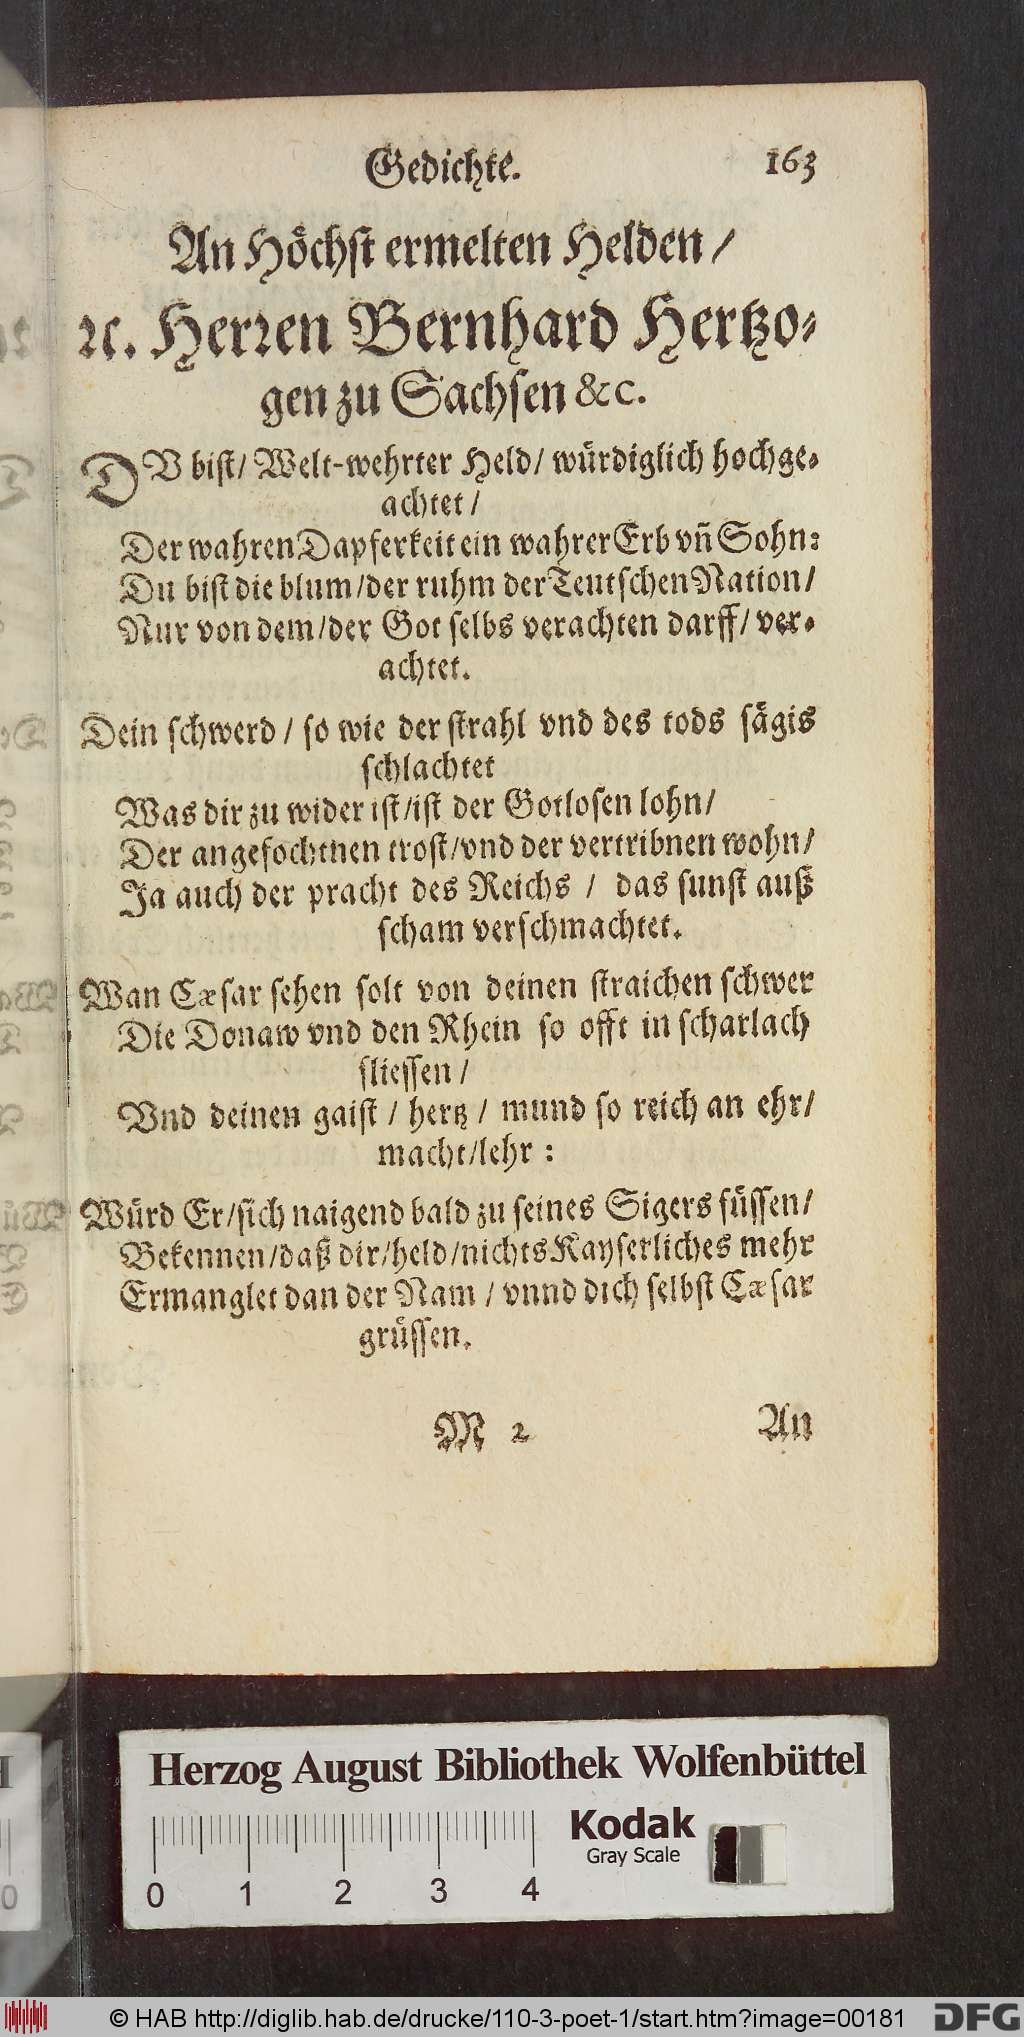 Gedichte. 163
An Höchst ermelten Helden /
ꝛc. Herꝛen Bernhard Hertzo⸗
gen zu Sachsen &c.
DV bist/ Welt-wehrter Held/ würdiglich hochge⸗
achtet /
Der wahren Dapferkeit ein wahrer Erb vñ Sohn:
Du bist die blum/der ruhm der Teutschen Nation/
Nur von dem/der Got selbs verachten darff/ ver⸗
achtet.
Dein schwerd / so wie der strahl vnd des tods sägis
schlachtet
Was dir zu wider ist/ist der Gotlosen lohn/
Der angefochtnen trost/vnd der vertribnen wohn/
Ja auch der pracht des Reichs / das sunst auß
scham verschmachtet.
Wan Cæsar sehen solt von deinen straichen schwer
Die Donaw vnd den Rhein so offt in scharlach
fliessen /
Vnd deinen gaist / hertz / mund so reich an ehr/
macht/lehr :
Würd Er/sich naigend bald zu seines Sigers füssen/
Bekennen/daß dir/held/nichts Kayserliches mehr
Ermanglet dan der Nam / vnnd dich selbst Cæsar
grüssen.
M 2 An
Herzog August Bibliothek Wolfenbüttel
Kodak
Gray Scale
0 1 2 3 4
© HAB http://diglib.hab.de/drucke/110-3-poet-1/start.htm?image=00181 DFG